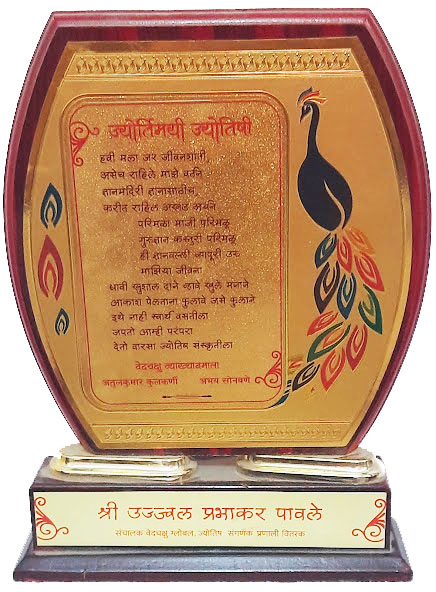 ज्योर्तिमयी ज्योतिषी
हवी मला जर जीवनशाली
असेच राहिले माझे वर्तन
ज्ञानमंदिरी
करीत राहिल अखंड अर्चन
परिमळा माजी परिमळू
गुरुज्ञान कस्तुरी परिमळू
ही ज्ञानवल्ली व्यापुरी उरु
माझिया जीवना
धावी खुशाल दाने व्हावे खुले मनाने
आकाश पेलताना फुलावे जसे फुलाने
इथे नाही स्वार्थ वसतीला
जपतो आम्ही परंपरा
देतो वारसा ज्योतिष संस्कृतीला
वेदचक्षु व्याख्यानमाला
अतुलकुमार कुलकर्णी अभय सोनवणे
श्री उज्ज्वल प्रभाकर पावले
संचालक वेदचक्षु ग्लोबल, ज्योतिष संगणक प्रणाली वितरक